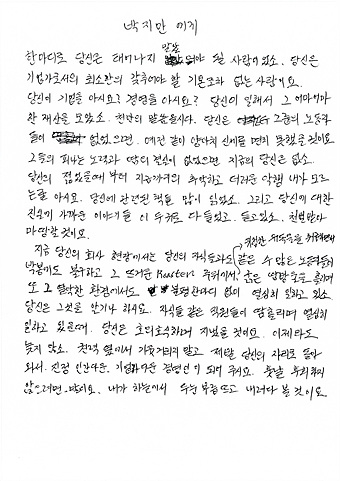 박지만 에게
한마디로 당신은 태어나지 말았어야 될 사람이었소. 당신은
기업가로서의 최소한의 갖추어야 할 기본조차 없는 사람이요.
당신이 기업을 아시요? 경영을 아시요? 당신이 일해서 그 어마어마
한 재산을 모았소. 천만의 말씀입니다. 당신은 그들의 노동자
들이 없었으면. 예전 같이 양아치 신세를 면치 못했을 것이요
그들의 피나는 노력과 땀의 결실이 없었으면 지금의 당신은 없소.
당신의 젊었을때 부터 지금까지의 추악하고 더러운 악행 내가 모르
는줄 아시요. 당신에 관련된 책을 많이 읽었소. 그리고 당신에 대한
진솔에 가까운 이야기들 이 두귀로 다 들었고. 듣고있소. 천벌받아
마땅할 것이요.
지금 당신의 회사 현장에서는 당신의 자식들과도 같은 수 많은 노동자들이
박봉에도 불구하고 그 뜨거운 Roaster 주위에서, 굵은 땀방울을 흘리며
또 그 열악한 환경에서도 불평한마디 없이 열심히 일하고 있소
당신은 그것을 안기나 하시요. 자식들 같은 직원들이 땀흘리며 열심히
일하고 있을때. 당신은 호의호식하며 지냈을 것이요. 이제라도
늦지 않소. 제발 당신의 자리로 돌아
와서. 진정 인간다운, 기업가다운 경영인이 되어 주시요.
않으려면. 말이요. 내가 하늘에서 두눈 부릅뜨고 내려다 볼 것이요